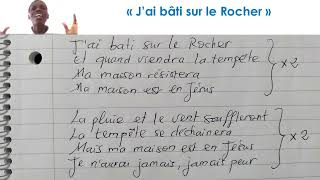 « J'ai bâti sur le Rocher »
J'ai bati sur le Rocher
Et quand viendra la tempête
Ma maison résistera
Ma maison est en Jésus
} x 2
La pluie et le vent souffleront
La tempête se déchainera
Mais ma maison est en Jésus
Je n'aurai jamais, jamais peur
} x 2